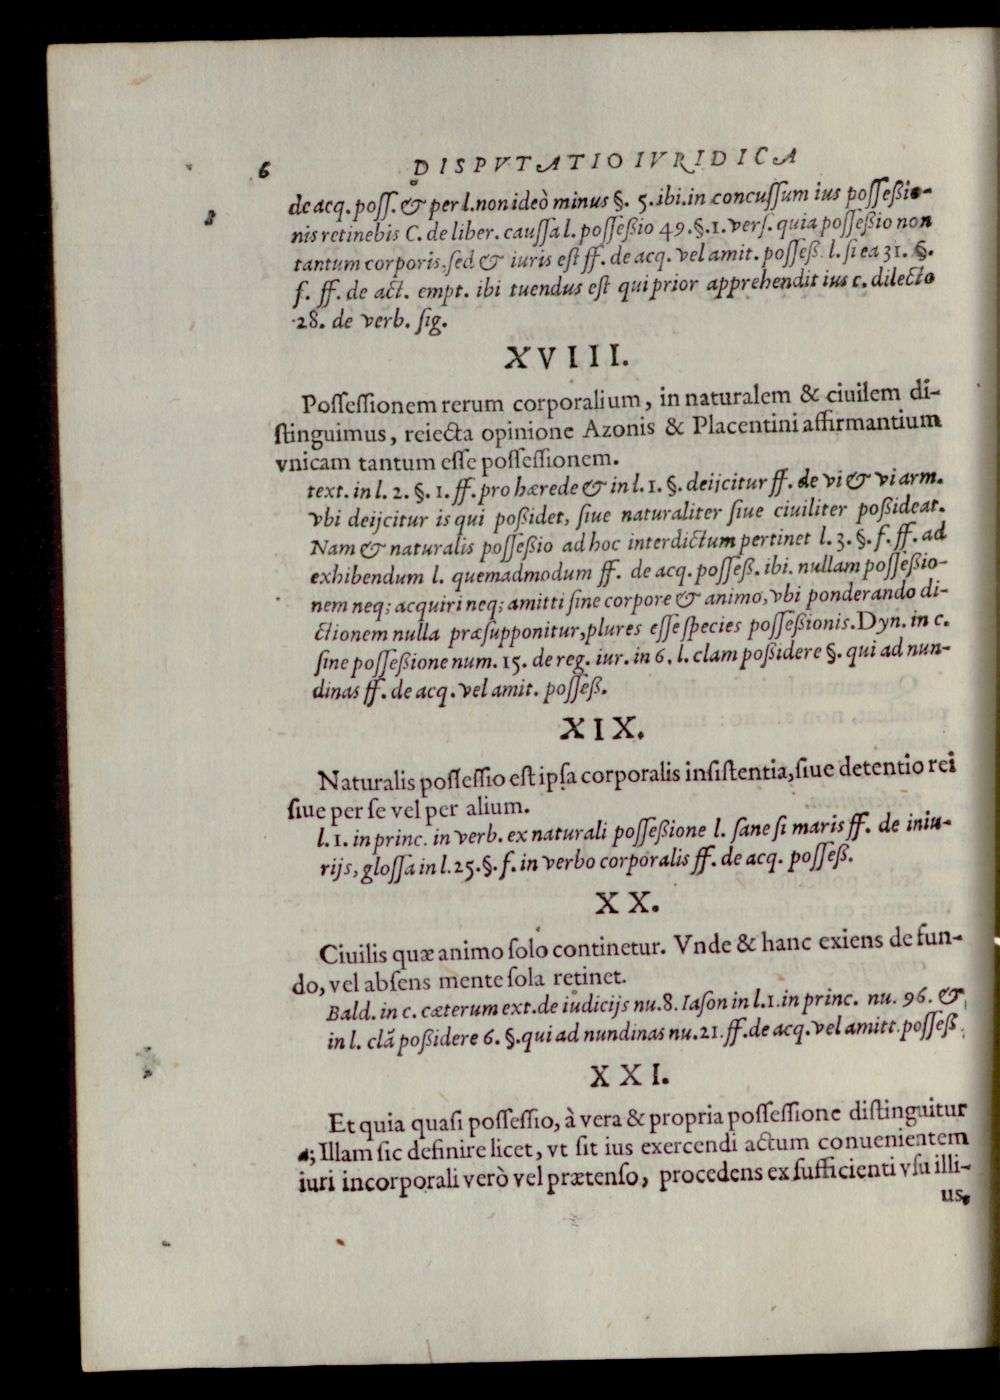 6 DISPVTATIO IVRIDICA
de acq. poſſ. & per l. non ideò minus §. 5. ibi. in concuſſum ius poſſeßio-
nis retinebis C. de liber. cauſſa l. poſſeßio 49. §. 1. verſ. quia poſſeßio non
tantum corporis, ſed & iuris eſt ff. de acq. vel amit. poſſeß. l. ſi ea 31. §.
f. ff. de act. empt. ibi tuendus eſt qui prior apprehendit ius c. dilecto
28. de verb. ſig.
XVIII.
Poſſeſſionem rerum corporalium, in naturalem & ciuilem di-
ſtinguimus, reiecta opinione Azonis & Placentini affirmantium
vnicam tantum eſſe poſſeſſionem.
text. in l. 2. §. 1. ff. pro hærede & in l. 1. §. deijcitur ff. de vi & vi arm.
vbi deijcitur is qui poßidet, ſiue naturaliter ſiue ciuiliter poßideat.
Nam & naturalis poſſeßio ad hoc interdictum pertinet l. 3. §. f. ff. ad
exhibendum l. quemadmodum ff. de acq. poſſeß. ibi. nullam poſſeßio-
nem neq; acquiri neq; amitti ſine corpore & animo, vbi ponderando di-
ctionem nulla præſupponitur, plures eſſe ſpecies poſſeßionis. Dyn. in c.
ſine poſſeßione num. 15. de reg. iur. in 6. l. clam poßidere §. qui ad nun-
dinas ff. de acq. vel amit. poſſeß.
XIX.
Naturalis poſſeſſio eſt ipſa corporalis inſiſtentia, ſiue detentio rei
ſiue per ſe vel per alium.
l. 1. in princ. in verb. ex naturali poſſeßione l. ſane ſi maris ff. de iniu-
rijs, gloſſa in l. 25. §. f. in verbo corporalis ff. de acq. poſſeß.
XX.
Ciuilis quæ animo ſolo continetur. Vnde & hanc exiens de fun-
do, vel abſens mente ſola retinet.
Bald. in c. cæterum ext. de iudicijs nu. 8. Iaſon in l. 1. in princ. nu. 96. &
in l. clã poßidere 6. §. qui ad nundinas nu. 21. ff. de acq. vel amitt. poſſeß.
XXI.
Et quia quaſi poſſeſſio, à vera & propria poſſeſſione diſtinguitur
a; Illam ſic definire licet, vt ſit ius exercendi actum conuenientem
iuri incorporali verò vel prætenſo, procedens ex ſufficienti vſu illi-
us,